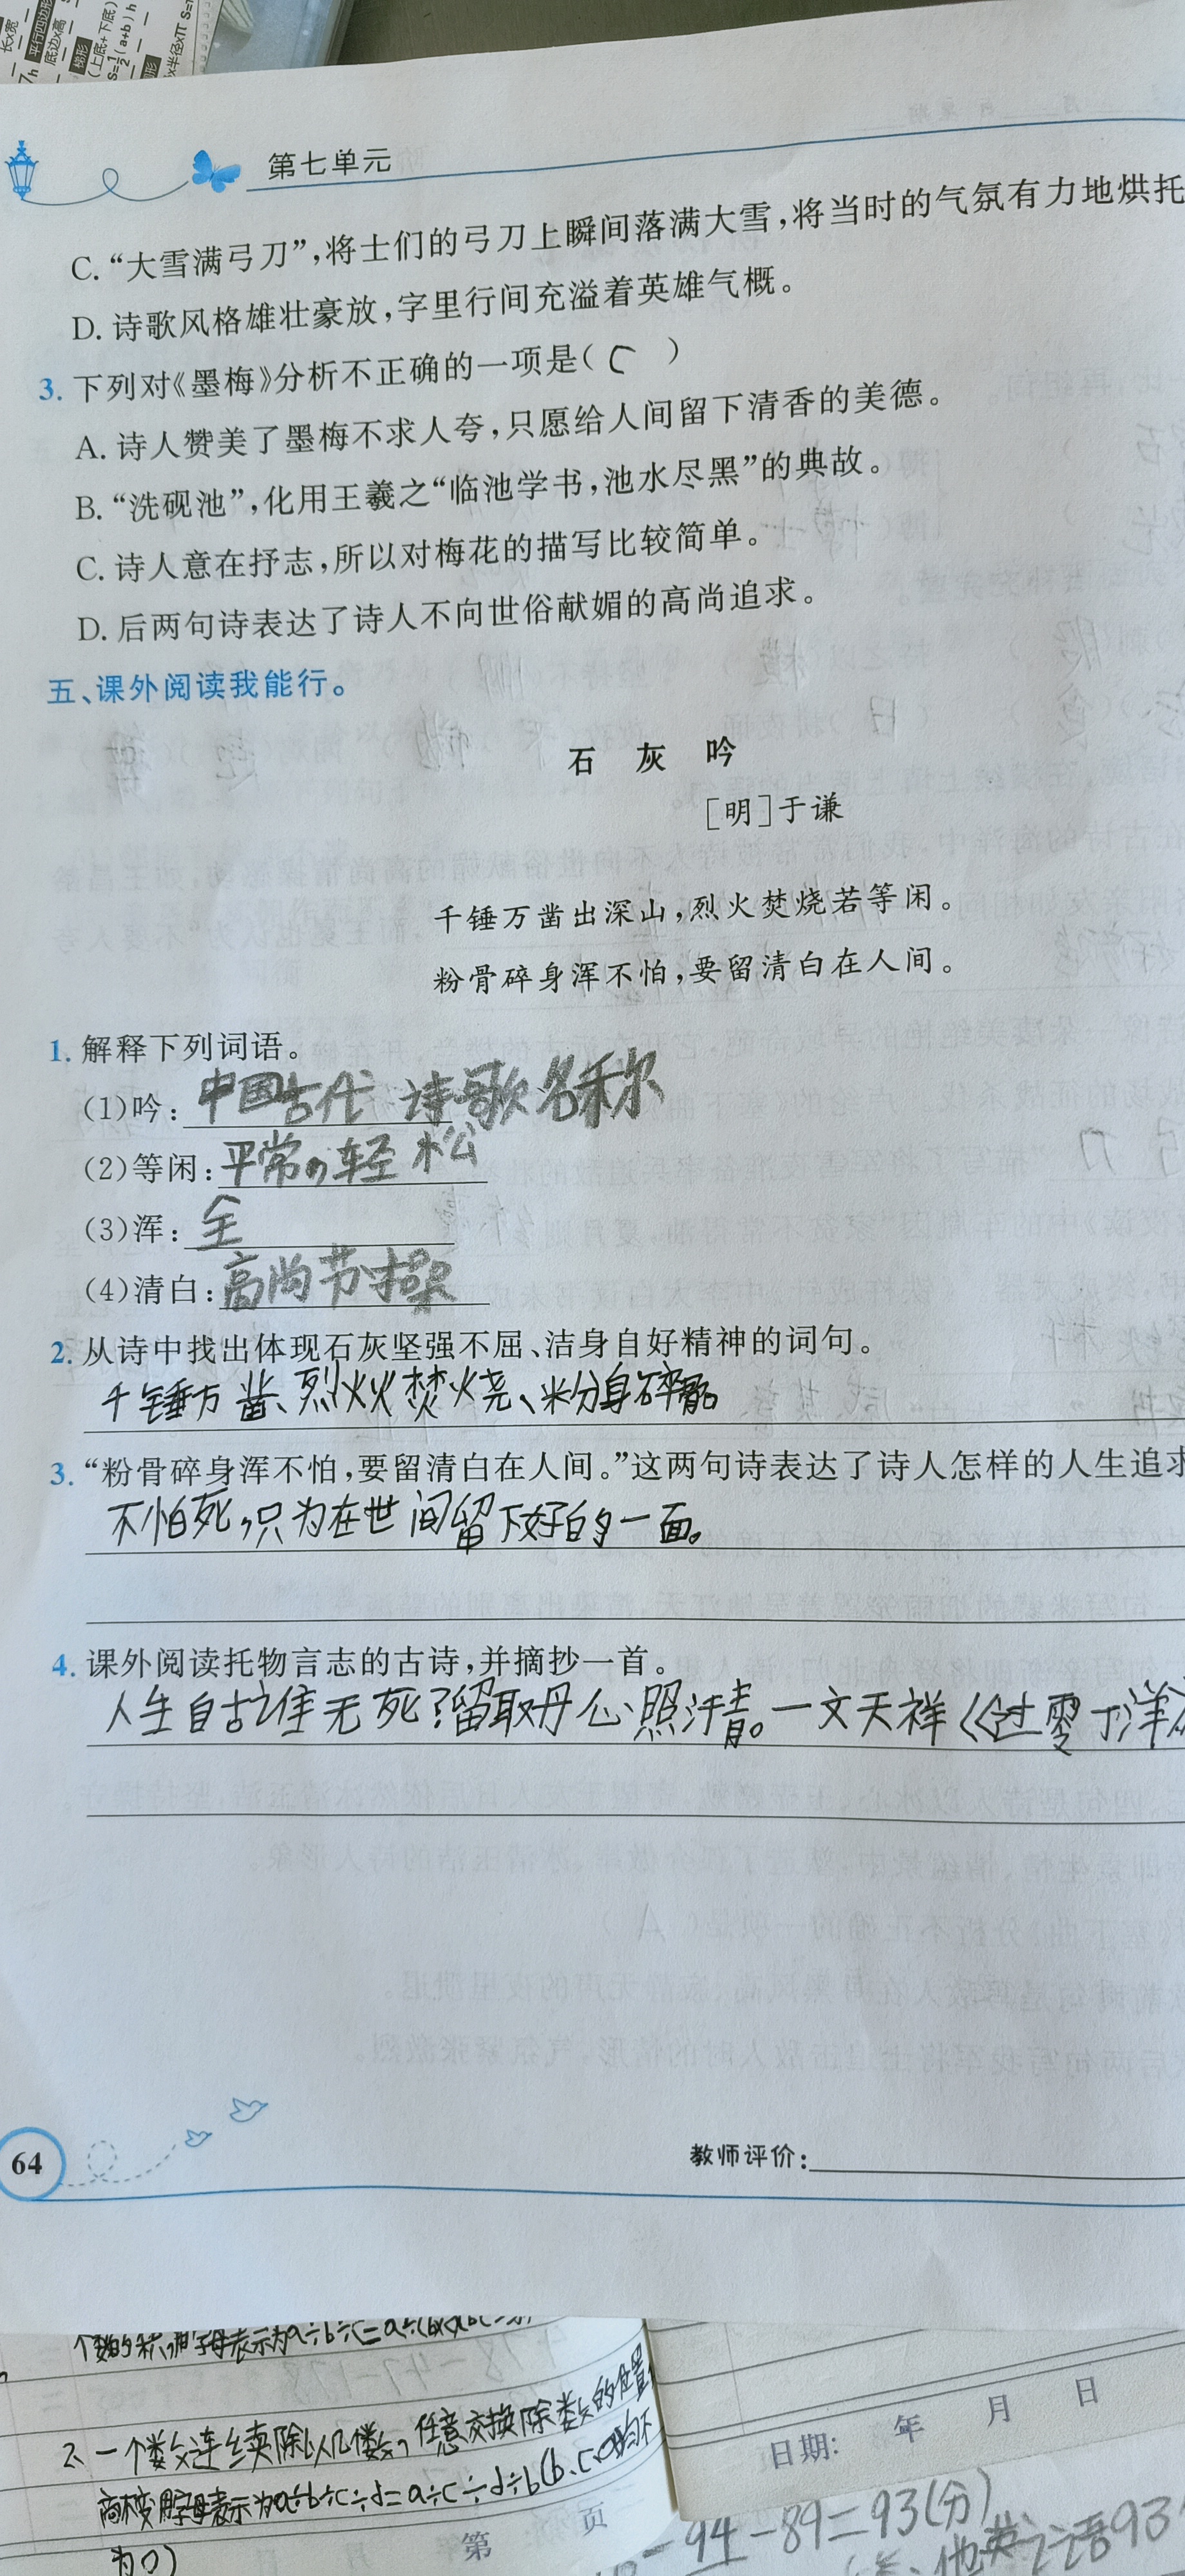 长×宽
平行四边形
底边×高
梯形
(上底+下底)
S=½(a+b)h
×半径×π
第七单元
C.“大雪满弓刀”,将士们的弓刀上瞬间落满大雪,将当时的气氛有力地烘托
D.诗歌风格雄壮豪放,字里行间充溢着英雄气概。
3.下列对《墨梅》分析不正确的一项是( C )
A.诗人赞美了墨梅不求人夸,只愿给人间留下清香的美德。
B.“洗砚池”,化用王羲之“临池学书,池水尽黑”的典故。
C.诗人意在抒志,所以对梅花的描写比较简单。
D.后两句诗表达了诗人不向世俗献媚的高尚追求。
五、课外阅读我能行。
石灰吟
[明]于谦
千锤万凿出深山,烈火焚烧若等闲。
粉骨碎身浑不怕,要留清白在人间。
1.解释下列词语。
(1)吟:中国古代诗歌名称
(2)等闲:平常,轻松
(3)浑:全
(4)清白:高尚节操
2.从诗中找出体现石灰坚强不屈、洁身自好精神的词句。
千锤万凿、烈火焚烧、粉身碎骨。
3.“粉骨碎身浑不怕,要留清白在人间。”这两句诗表达了诗人怎样的人生追求
不怕死,只为在世间留下好的一面。
4.课外阅读托物言志的古诗,并摘抄一首。
人生自古谁无死?留取丹心照汗青。一文天祥《过零丁洋
64
教师评价:
个数的积,用字母表示为a÷b÷c=a÷(b×
2、一个数连续除以几个数,任意交换除数的位置,
商不变用字母表示为a÷b÷c÷d=a÷c÷d÷b(b、c、d均不
为0)
第 页
日期: 年 月 日
-94-89=93(分)
他英语93